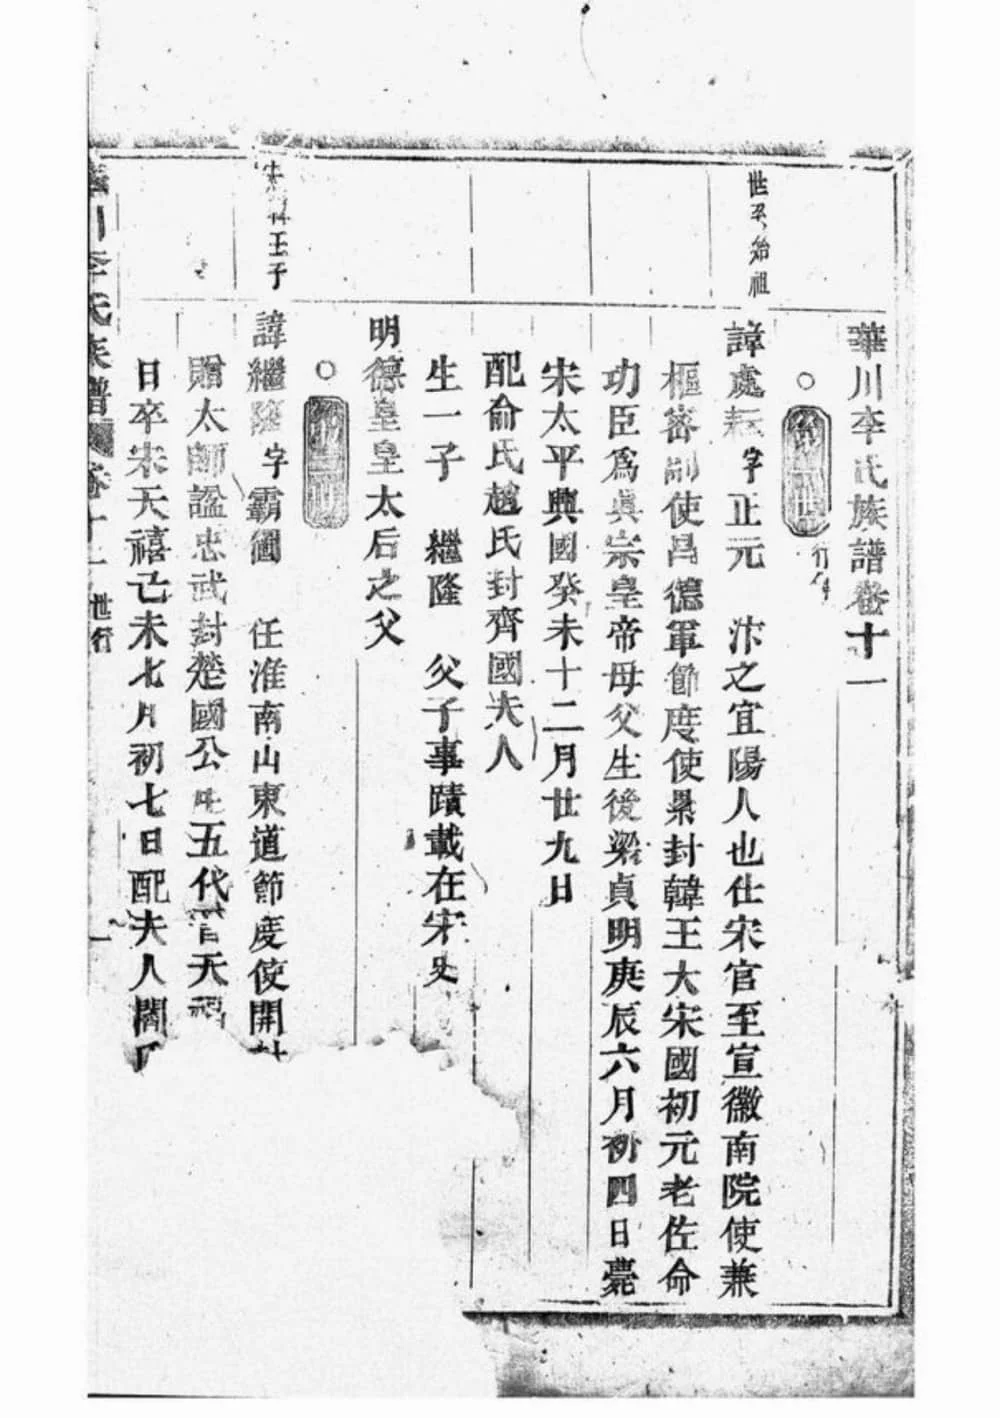 華川李氏族譜卷十一
第一世
行傳
世系始祖
諱處耘字正元 汴之宜陽人也仕宋官至宣徽南院使兼
樞密副使昌德軍節度使累封韓王大宋國初元老佐命
功臣爲真宗皇帝母父生後梁貞明庚辰六月初四日薨
宋太平興國癸未十二月廿九日
配俞氏趙氏封齊國夫人
生一子 繼隆 父子事蹟載在宋史
明德皇皇太后之父
第二世
王子
諱繼隆字霸圖 任淮南山東道節度使開
贈太師諡忠武封楚國公生五代晉天福
日卒宋天禧己未七月初七日配夫人閻
川李氏族譜 卷十一 世行 一